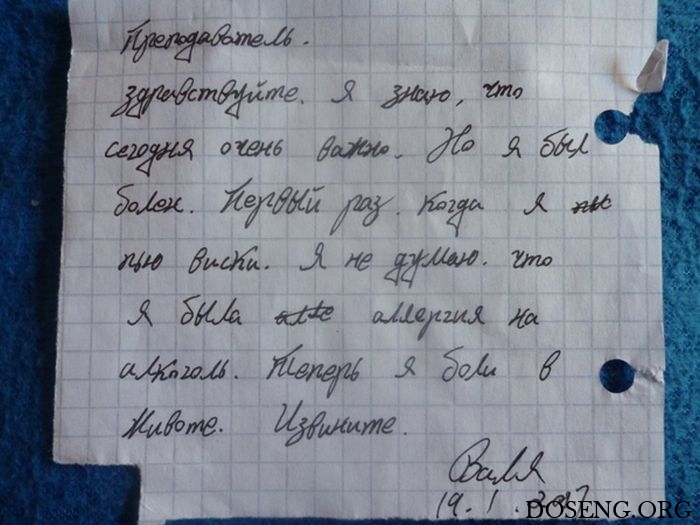 Преподаватель.
здравствуйте. я знаю, что
сегодня очень важно. Но я был
болен. Первый раз. Когда я
пью виски. Я не думаю. что
я была аллергия на
алкоголь. Теперь я боли в
животе. Извините.
Валя
19.1.
DOSENG.ORG